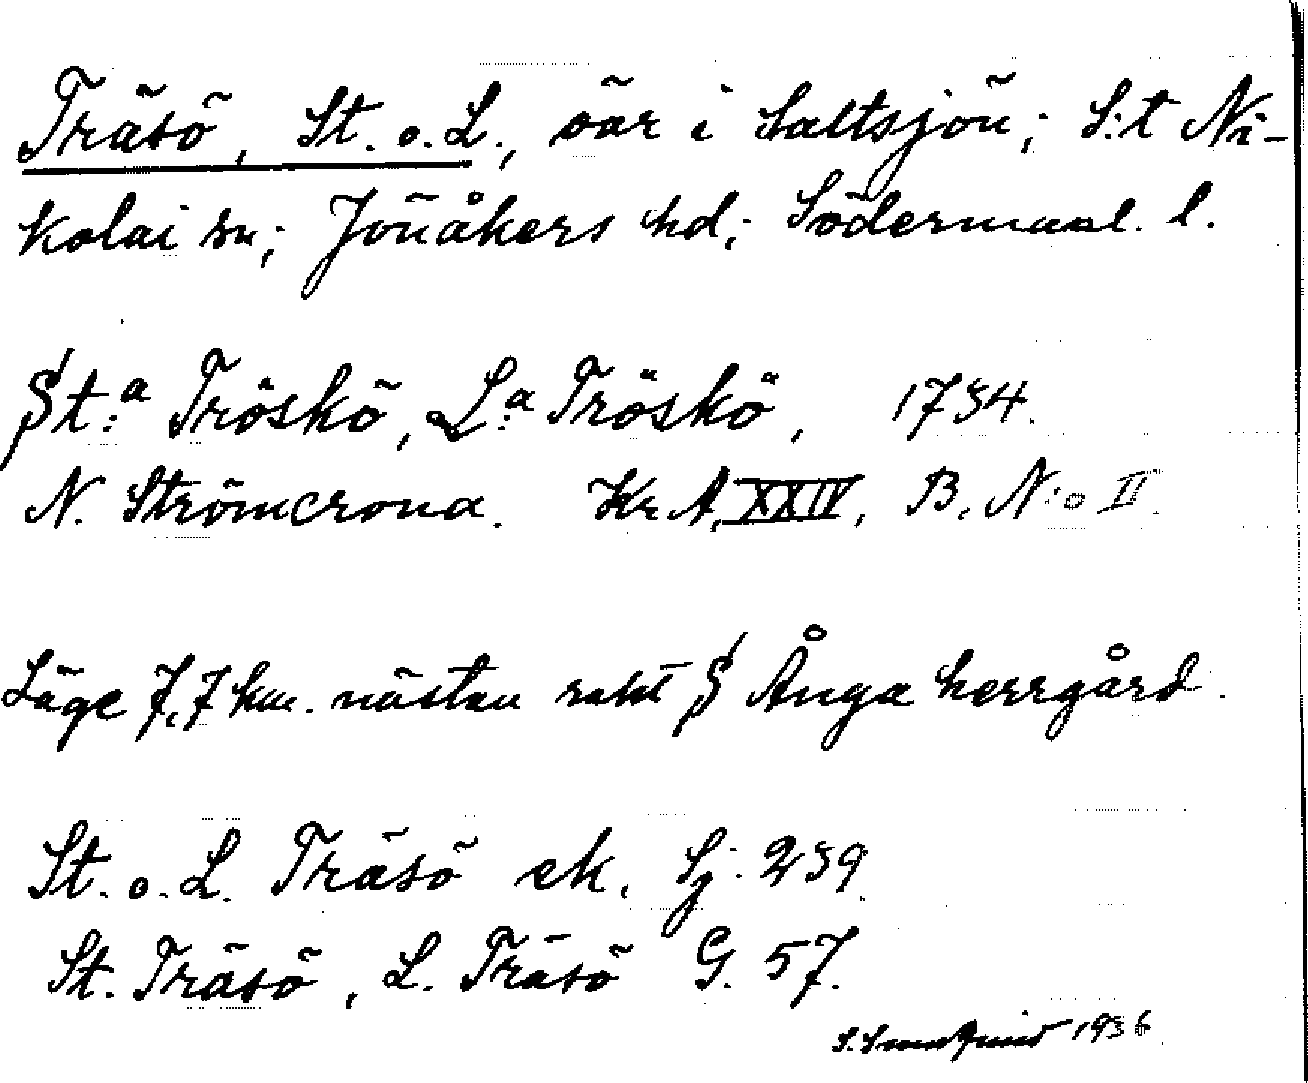 Träsö, St. o. L., öar i Saltsjön; S:t Ni-
kolai sn; Jönåkers hd; Södermanl. l.
St:a Tröskö, L:a Tröskö, 1734.
N. Strömcrona. Kr. A, XXIV, B, N:o II.
Läge 7,7 km. nästan rakt S Ånga herrgård.
St. o. L. Träsö ek. Sj. 239.
St. Träsö, L. Träsö G. 57.
1936